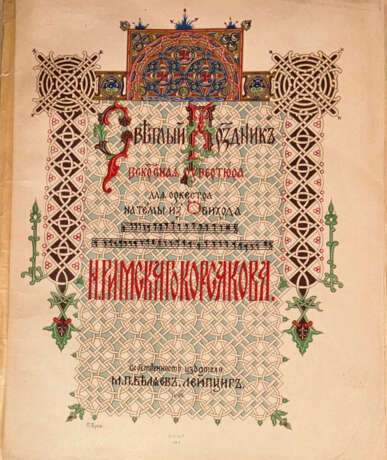 Свѣтлый Праздникъ
Воскресная увертюра
для оркестра
на темы из Обихода
Н. Римскаго Корсакова.
Собственность издателя
М. П. Бѣляевъ, Лейпцигъ